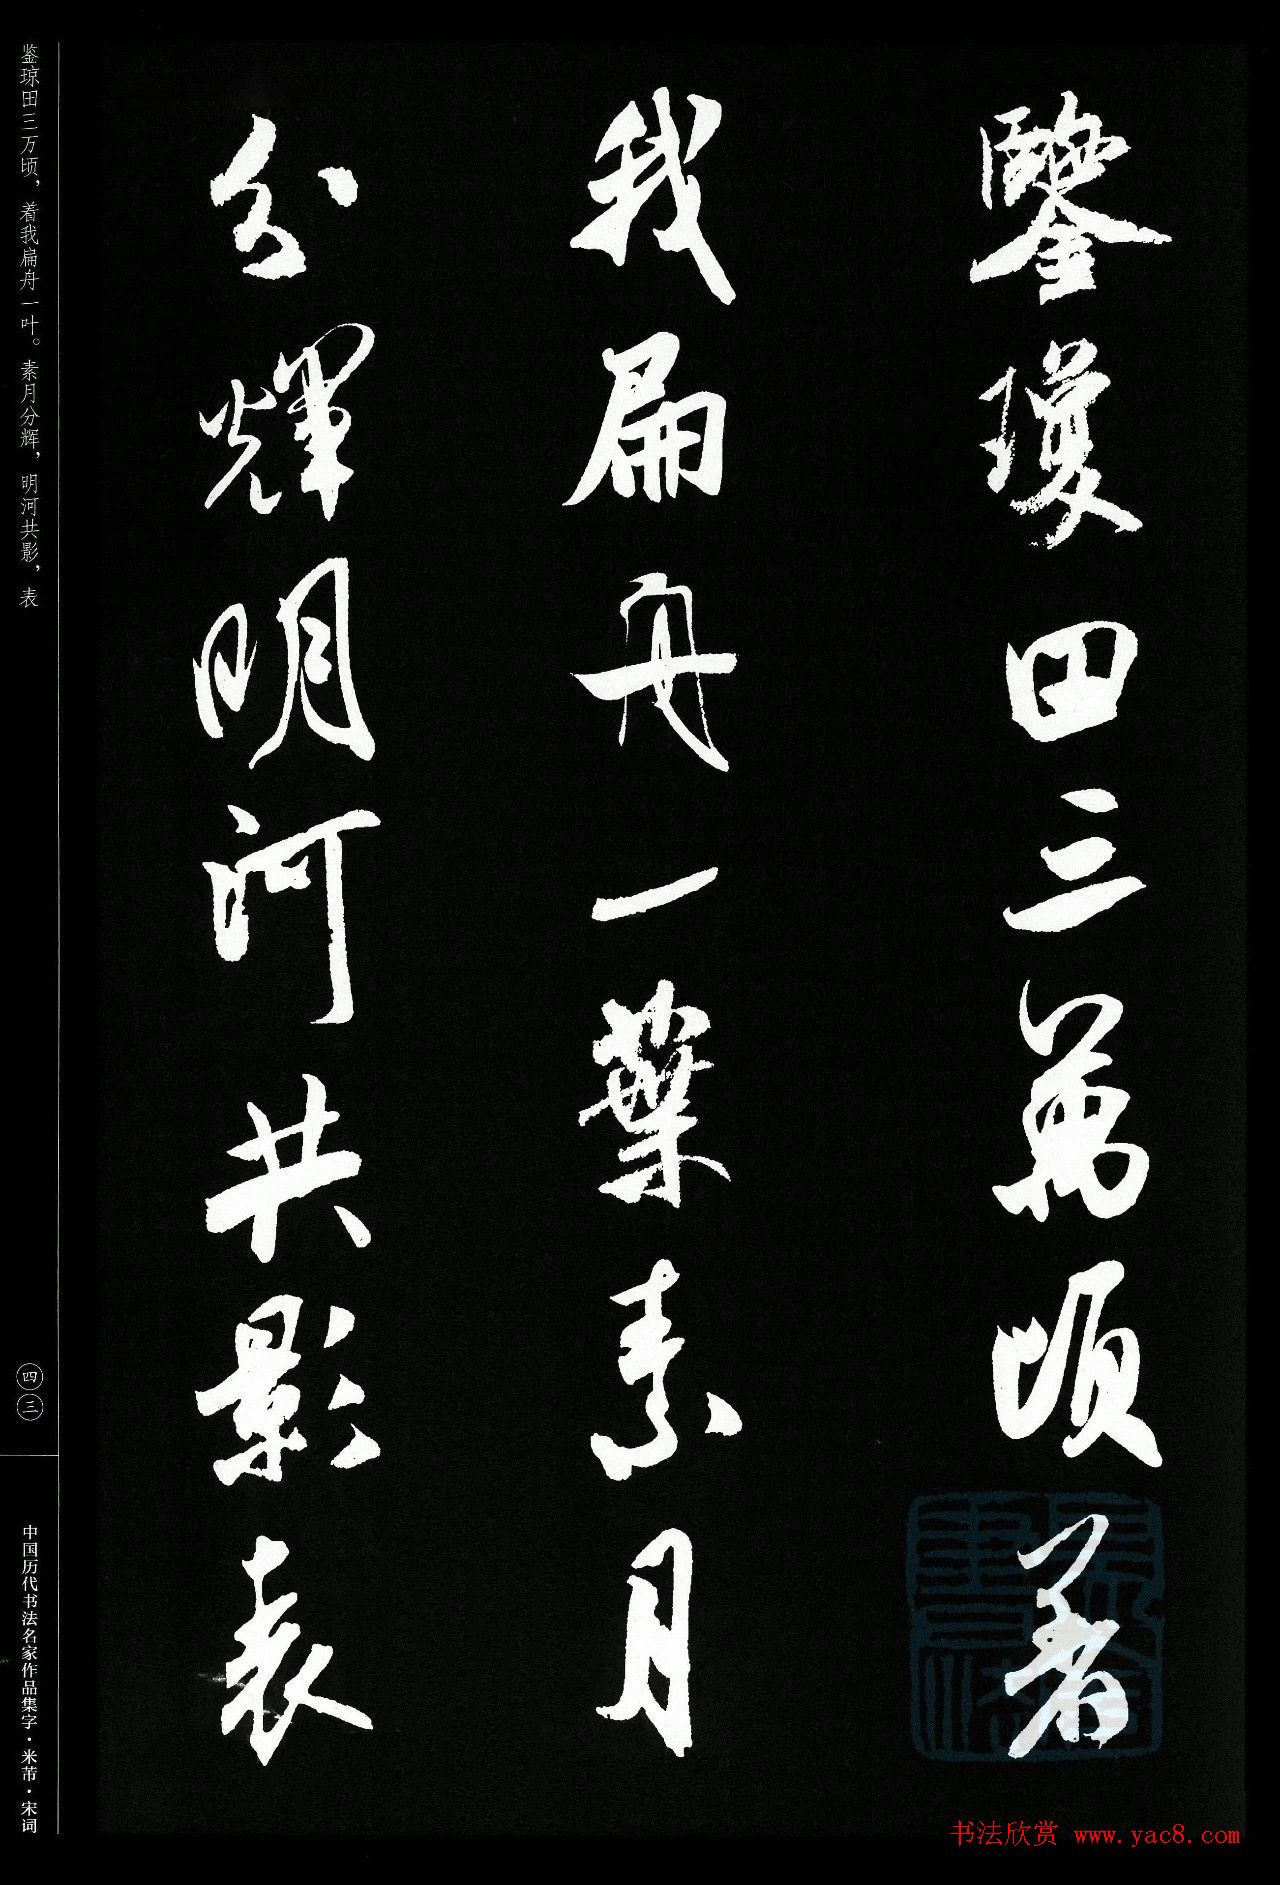 鑒瓊田三萬頃著
我扁舟一葉素月
分輝明河共影表
鉴琼田三万顷，着我扁舟一叶。素月分辉，明河共影，表
四三
中国历代书法名家作品集字·米芾·宋词
书法欣赏 www.yac8.com